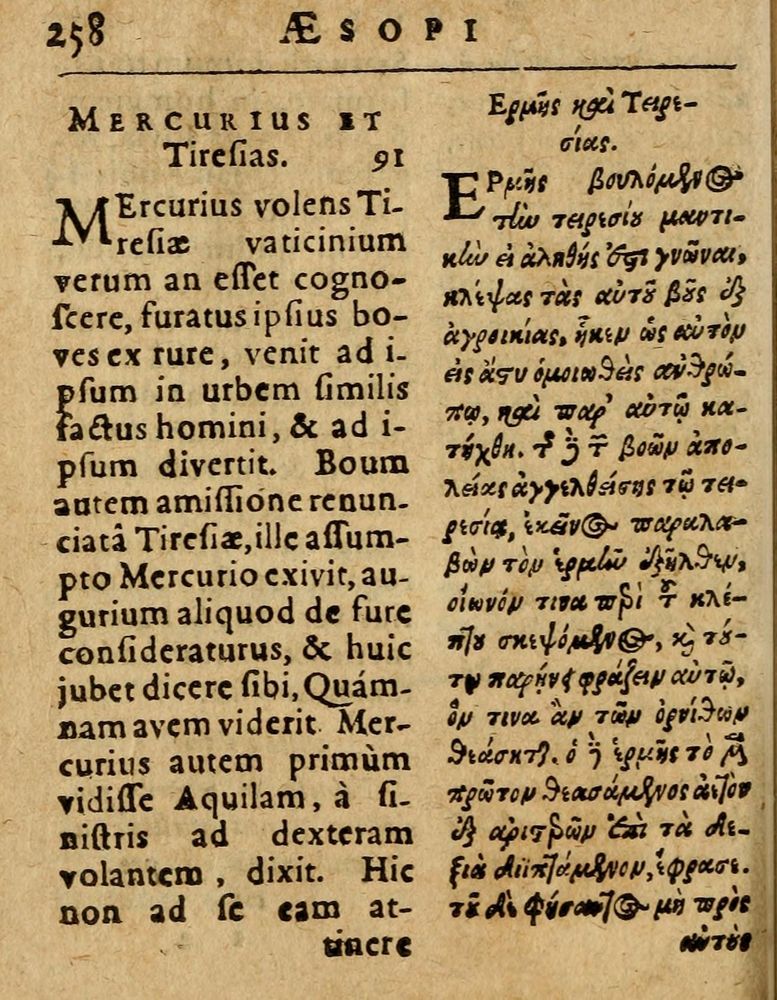 258 ÆSOPI
MERCURIUS ET
Tiresias. 91
MErcurius volens Ti-
resiæ vaticinium
verum an esset cogno-
scere, furatus ipsius bo-
ves ex rure, venit ad i-
psum in urbem similis
factus homini, & ad i-
psum divertit. Boum
autem amissione renun-
ciatâ Tiresiæ, ille assum-
pto Mercurio exivit, au-
gurium aliquod de fure
consideraturus, & huic
jubet dicere sibi, Quám-
nam avem viderit. Mer-
curius autem primùm
vidisse Aquilam, à si-
nistris ad dexteram
volantem, dixit. Hic
non ad se eam at-
tinere
Ερμῆς καὶ Τειρε-
σίας.
ΕΡμῆς βουλόμενος
τὴν τειρεσίου μαντι-
κὴν εἰ ἀληθής ἐστι γνῶναι,
κλέψας τὰς αὐτοῦ βοῦς ἐξ
ἀγροικίας, ἧκεν ὡς αὐτὸν
εἰς ἄστυ ὁμοιωθεὶς ἀνθρώ-
πῳ, καὶ παρ' αὐτῷ κα-
τήχθη. τῆς δὲ τῶν βοῶν ἀπο-
λείας ἀγγελθείσης τῷ τει-
ρεσίᾳ, ἐκεῖνος παραλα-
βὼν τὸν ἑρμῆν ἐξῆλθεν,
οἰωνόν τινα περὶ τοῦ κλέ-
πτου σκεψόμενος, καὶ τού-
τῳ παρῄνει φράζειν αὐτῷ,
ὅν τινα ἂν τῶν ὀρνίθων
θεάσηται. ὁ δὲ ἑρμῆς τὸ μὲν
πρῶτον θεασάμενος ἀετὸν
ἐξ ἀριστερῶν ἐπὶ τὰ δε-
ξιὰ διϊπτάμενον, ἔφρασε.
τοῦ δὲ φήσαντος μὴ πρὸς
αὐτοὺς